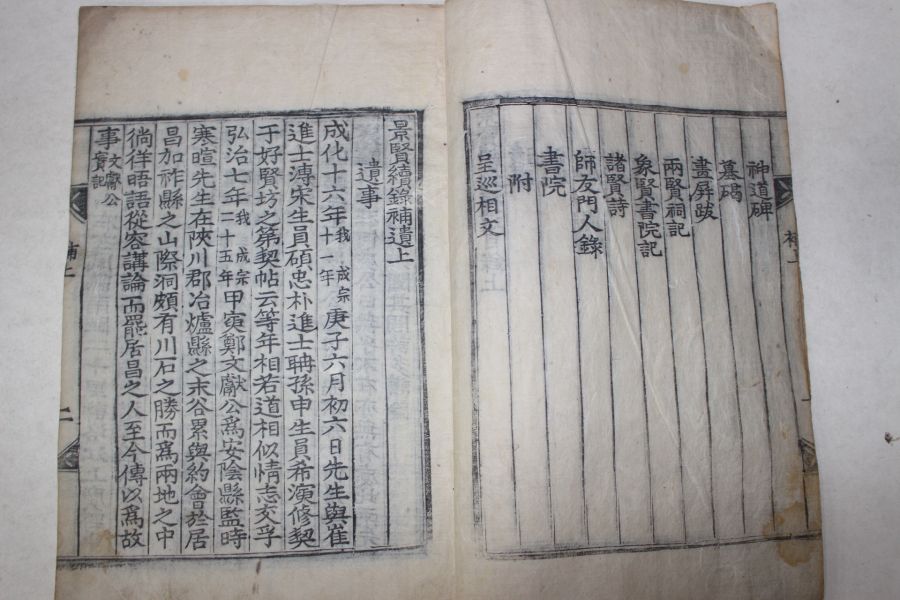 神道碑
墓碣
畫屏跋
兩賢祠記
象賢書院記
諸賢詩
師友門人錄
書院
附
呈巡相文
補上
景賢續錄補遺上
遺事
成化十六年我成宗十一年庚子六月初六日先生與崔
進士溥宋生員碩忠朴進士聃孫申生員希演修契
于好賢坊之第契帖云等年相若道相似情志交孚
弘治七年我成宗二十五年甲寅鄭文獻公爲安陰縣監時
寒暄先生在陜川郡冶爐縣之末谷累與約會於居
昌加祚縣之山際洞頗有川石之勝而爲兩地之中
徜徉晤語從容講論而罷居昌之人至今傳以爲故
事文獻公實記
補上
二